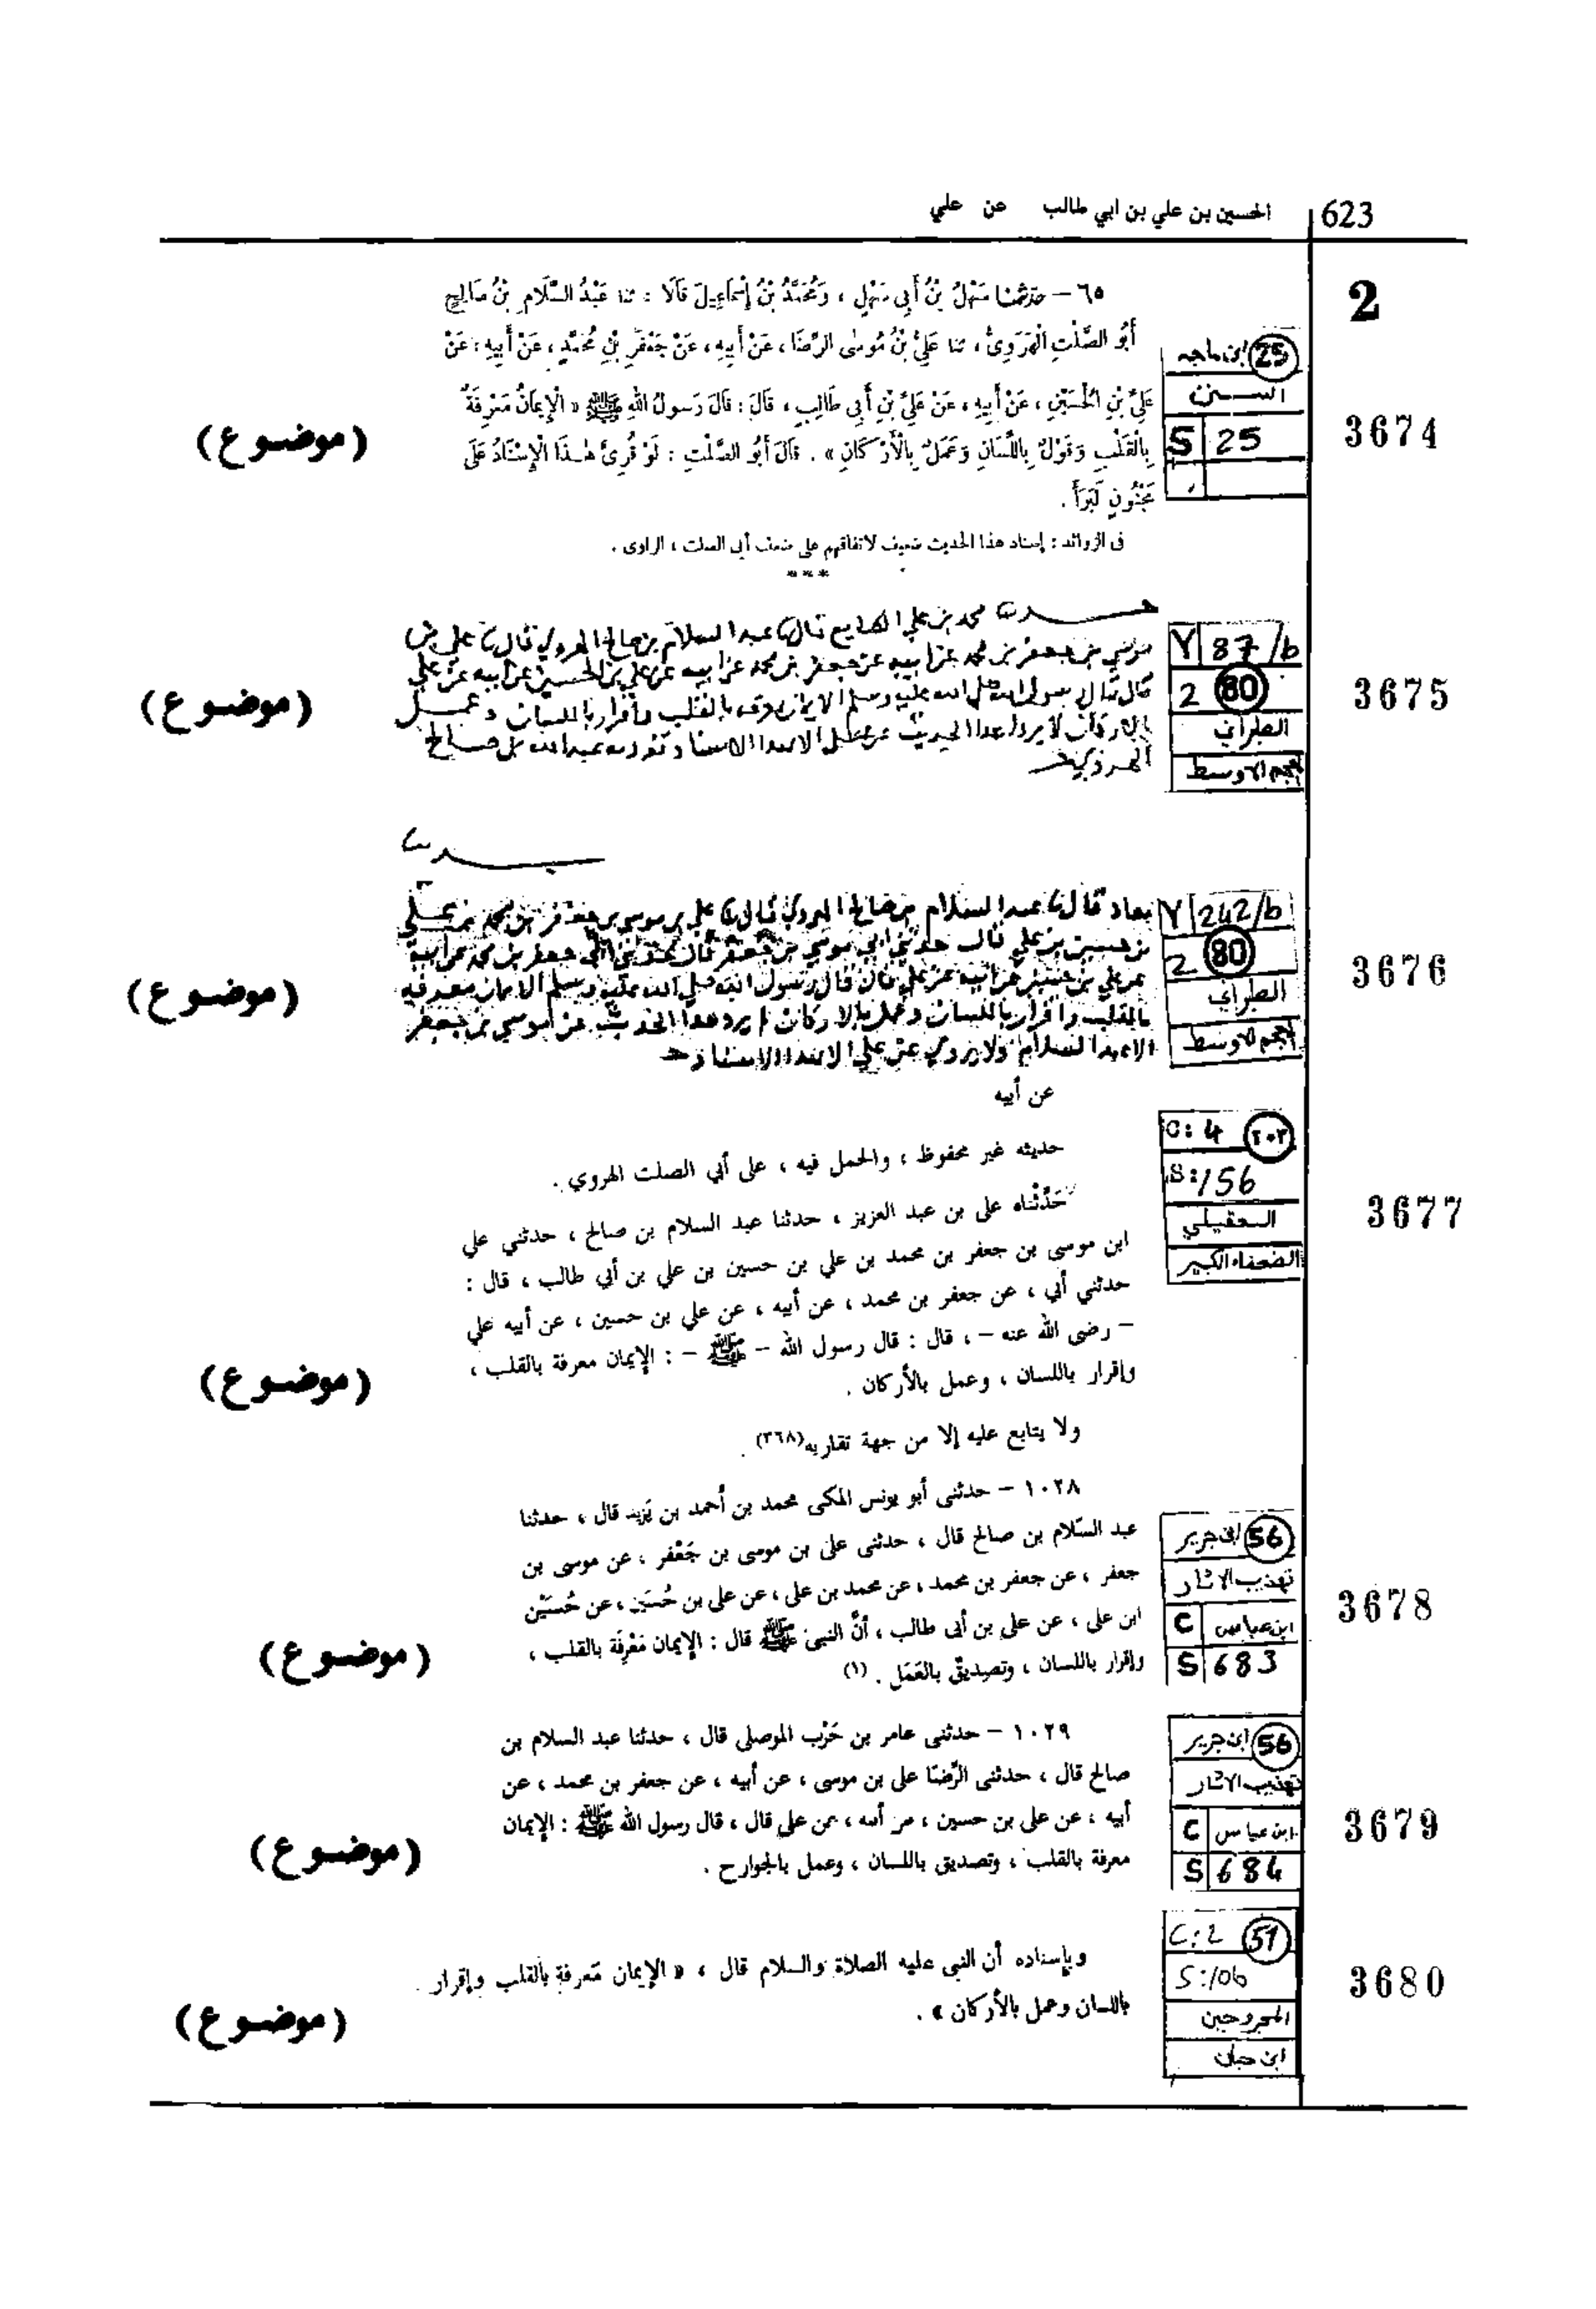 623
الحسين بن علي بن ابي طالب عن علي
2
٦٥ – حدثنا سَهْلُ بْنُ أَبِي سَهْلٍ ، وَمُحَمَّدُ بْنُ إِسْمَاعِيلَ قَالَا : ثنا عَبْدُ السَّلَامِ بْنُ صَالِحٍ
أَبُو الصَّلْتِ الْهَرَوِىُّ ، ثنا عَلِىُّ بْنُ مُوسَى الرِّضَا ، عَنْ أَبِيهِ ، عَنْ جَعْفَرِ بْنِ مُحَمَّدٍ ، عَنْ أَبِيهِ ؛ عَنْ
عَلِىِّ بْنِ الْحُسَيْنِ ، عَنْ أَبِيهِ ، عَنْ عَلِىِّ بْنِ أَبِى طَالِبٍ ، قَالَ : قَالَ رَسُولُ اللهِ ﷺ « الْإِيمَانُ مَعْرِفَةٌ
بِالْقَلْبِ وَقَوْلٌ بِاللِّسَانِ وَعَمَلٌ بِالْأَرْكَانِ » . قَالَ أَبُو الصَّلْتِ : لَوْ قُرِئَ هٰذَا الْإِسْنَادُ عَلَى
مَجْنُونٍ لَبَرَأَ .
فى الزوائد : إسناد هذا الحديث ضعيف لاتفاقهم على ضعف أبى الصلت ، الراوى .
***
25 ابن ماجه
السنن
S 25
3674
(موضوع)
محمد بن علي الصايغ قال نا عبد السلام بن صالح الهروي قال نا علي بن
موسي بن جعفر بن محمد عن ابيه عن جعفر بن محمد عن ابيه عن علي بن الحسين عن ابيه عن علي
قال قال رسول الله صلي الله عليه وسلم الايمان معرفه بالقلب واقرار باللسان وعمل
بالاركان لا يروا هدا الحديث عن علي الا بهدا الاسناد تفرد به عبد السلام بن صالح
الهروي
Y 87/b
2 80
الطبراني
المعجم الاوسط
3675
(موضوع)
معاد قال نا عبد السلام بن صالح الهروي قال نا علي بن موسي بن جعفر بن محمد بن علي
بن حسين بن علي قال حدثني ابي موسي بن جعفر قال حدثني ابي جعفر بن محمد عن ابيه
عن علي بن حسين عن ابيه عن علي قال قال رسول الله صلي الله عليه وسلم الايمان معرفه
بالقلب واقرار باللسان وعمل بالاركان لم يرو هدا الحديث عن موسي بن جعفر
الا عبد السلام ولا يروي عن علي الا بهدا الاسناد
Y 242/b
2 80
الطبراني
المعجم الاوسط
3676
(موضوع)
عن أبيه
حديثه غير محفوظ ، والحمل فيه ، على أبي الصلت الهروي .
حَدَّثْناه على بن عبد العزيز ، حدثنا عبد السلام بن صالح ، حدثني علي
ابن موسى بن جعفر بن محمد بن علي بن حسين بن علي بن أبي طالب ، قال :
حدثني أبي ، عن جعفر بن محمد ، عن أبيه ، عن علي بن حسين ، عن أبيه علي
– رضى الله عنه – ، قال : قال رسول الله – ﷺ – : الإيمان معرفة بالقلب ،
وإقرار باللسان ، وعمل بالأركان .
ولا يتابع عليه إلا من جهة تقاربه(٣٦٨) .
C: 4 ٢٠٣
S: 156
العقيلي
الضعفاء الكبير
3677
(موضوع)
١٠٢٨ – حدثنى أبو يونس المكى محمد بن أحمد بن يَزيد قال ، حدثنا
عبد السّلام بن صالح قال ، حدثنى على بن موسى بن جَعْفر ، عن موسى بن
جعفر ، عن جعفر بن محمد ، عن محمد بن على ، عن على بن حُسَين ، عن حُسَيْن
ابن على ، عن على بن أبى طالب ، أنَّ النبىَّ ﷺ قال : الإيمان مَعْرِفَة بالقلب ،
وإقرار باللسان ، وتصديقٌ بالعَمَل . (١)
56 ابن جرير
تهذيب الاثار
C ابن عباس
S 683
3678
(موضوع)
١٠٢٩ – حدثنى عامر بن حَرْب الموصلى قال ، حدثنا عبد السلام بن
صالح قال ، حدثنى الرِّضَا على بن موسى ، عن أبيه ، عن جعفر بن محمد ، عن
أبيه ، عن على بن حسين ، عن أبيه ، عن على قال ، قال رسول الله ﷺ : الإيمان
معرفة بالقلب ، وتصديق باللسان ، وعمل بالجوارح .
56 ابن جرير
تهذيب الاثار
C ابن عباس
S 684
3679
(موضوع)
وبإسناده أن النبى عليه الصلاة والسلام قال ، « الإيمان مَعرفة بالقلب وإقرار
باللسان وعمل بالأركان » .
C: 2 51
S: 106
المجروحين
ابن حبان
3680
(موضوع)